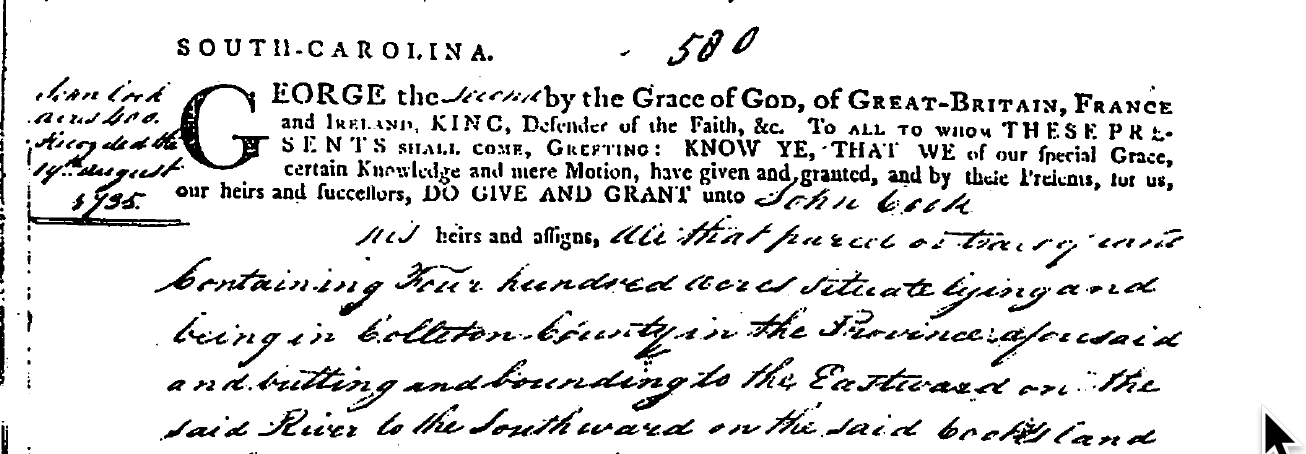 SOUTH-CAROLINA. 580
John Cock
acres 400.
Recorded the
19th August
1735.
GEORGE the Second by the Grace of GOD, of GREAT-BRITAIN, FRANCE
and IRELAND, KING, Defender of the Faith, &c. TO ALL TO WHOM THESE PRE-
SENTS SHALL COME, GREETING: KNOW YE, THAT WE of our special Grace,
certain Knowledge and mere Motion, have given and granted, and by these Presents, for us,
our heirs and successors, DO GIVE AND GRANT unto John Cock
his heirs and assigns, All that parcel or tract of land
Containing Four hundred acres situate lying and
being in Colleton County in the Province aforesaid
and butting and bounding to the Eastward on the
said River to the Southward on the said Cock's land